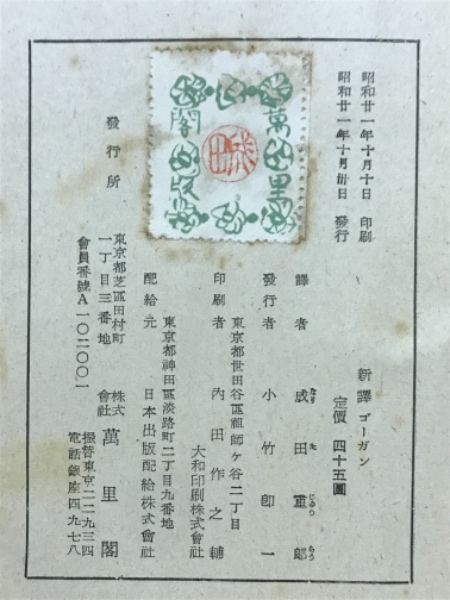 昭和廿一年十月十日 印刷
昭和廿一年十月卅日 發行
新譯 ゴーガン
定價 四十五圓
譯者 成田重郎
なり た じゆう らう
發行者 小竹卽一
東京都世田谷區祖師ヶ谷二丁目
印刷者 内田作之輔
大和印刷株式會社
東京都神田區淡路町二丁目九番地
配給元 日本出版配給株式會社
發行所
東京都芝區田村町
一丁目三番地
會員番號A一〇二〇〇一
株式會社 萬里閣
振替東京二二九三四
電話銀座四九七八
萬里
閣